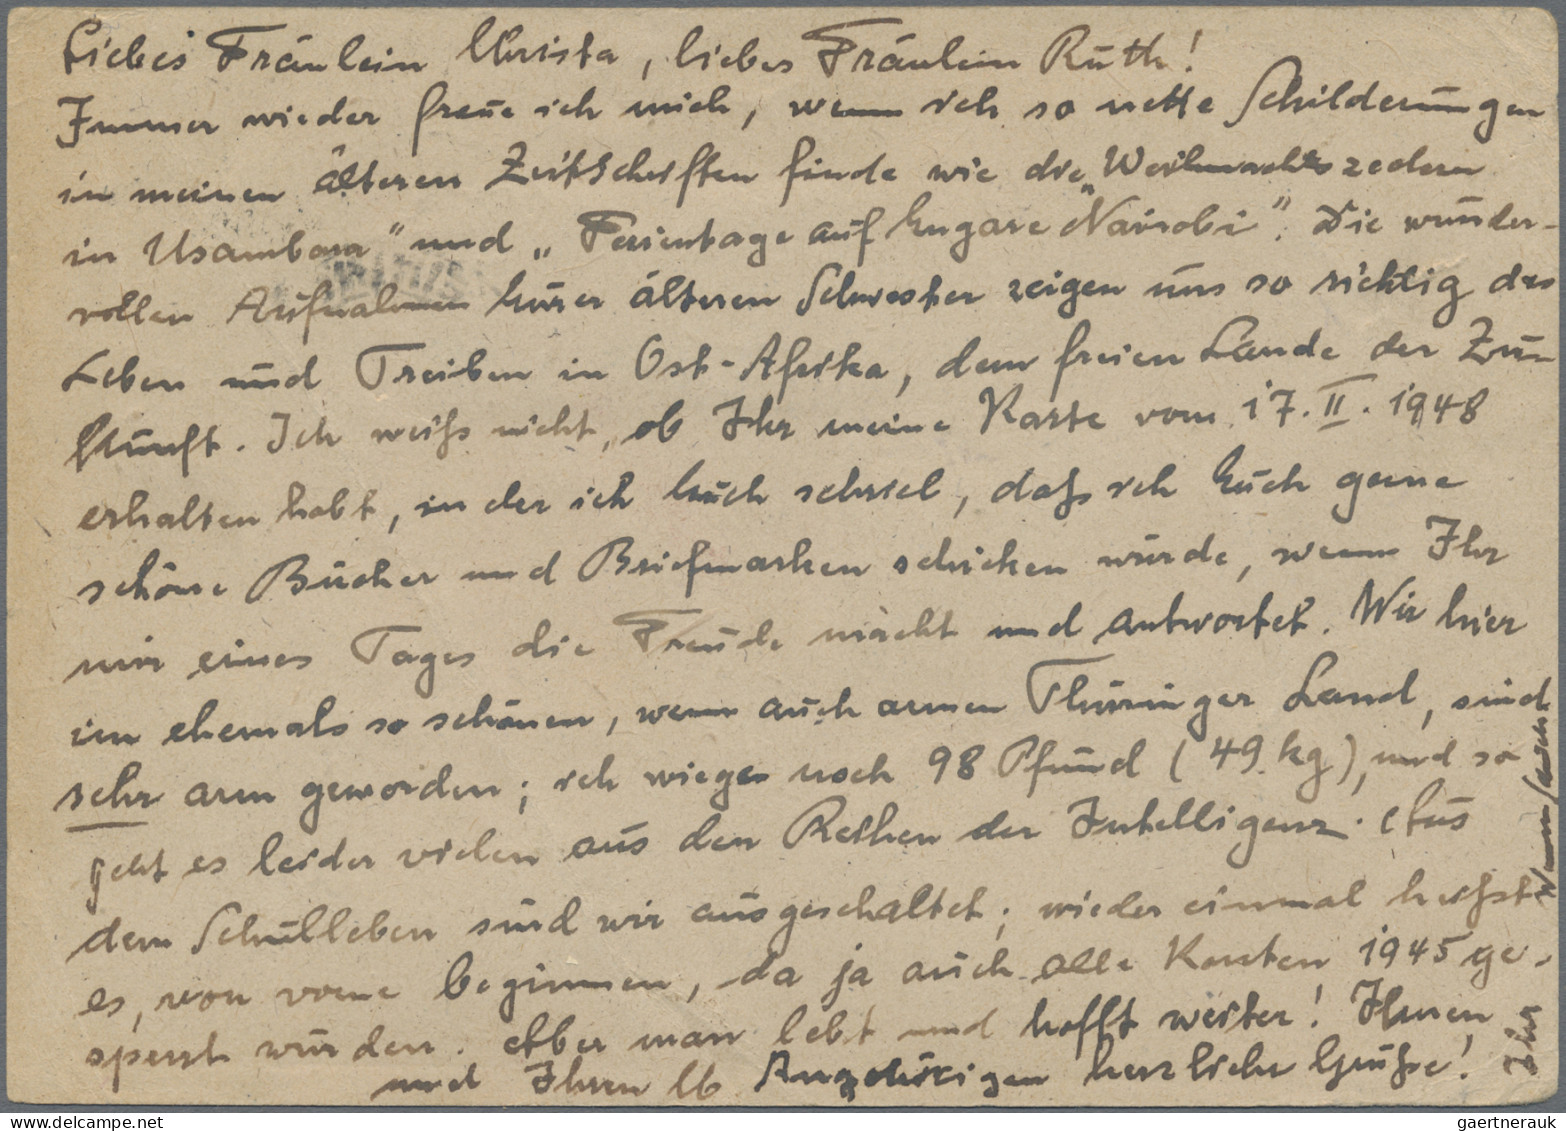 Liebes Fräulein Christa, liebes Fräulein Ruth!
Immer wieder freue ich mich, wenn ich so nette Schilderungen
in meinen älteren Zeitschriften finde wie die „Weihnachtszedern
in Usambara“ und „Ferientage auf Engare Nairobi“. Die wunder-
vollen Aufnahmen Eurer älteren Schwester zeigen uns so richtig das
Leben und Treiben in Ost-Afrika, dem freien Lande der Zu-
kunft. Ich weiß nicht, ob Ihr meine Karte vom 17. II. 1948
erhalten habt, in der ich Euch schrieb, daß ich Euch gerne
schöne Bücher und Briefmarken schicken würde, wenn Ihr
mir eines Tages die Freude macht und antwortet. Wir hier
im ehemals so schönen, wenn auch armen Thüringer Land, sind
sehr arm geworden; ich wiege noch 98 Pfund (49 kg), und so
geht es leider vielen aus den Reihen der Intelligenz. Aus
dem Schulleben sind wir ausgeschaltet; wieder einmal heißt
es, von vorne beginnen, da ja auch alle Konten 1945 ge-
sperrt wurden. Aber man lebt und hofft weiter! Ihnen
und Ihren lb Angehörigen herzliche Grüße!
Ihr
gaertnerauk